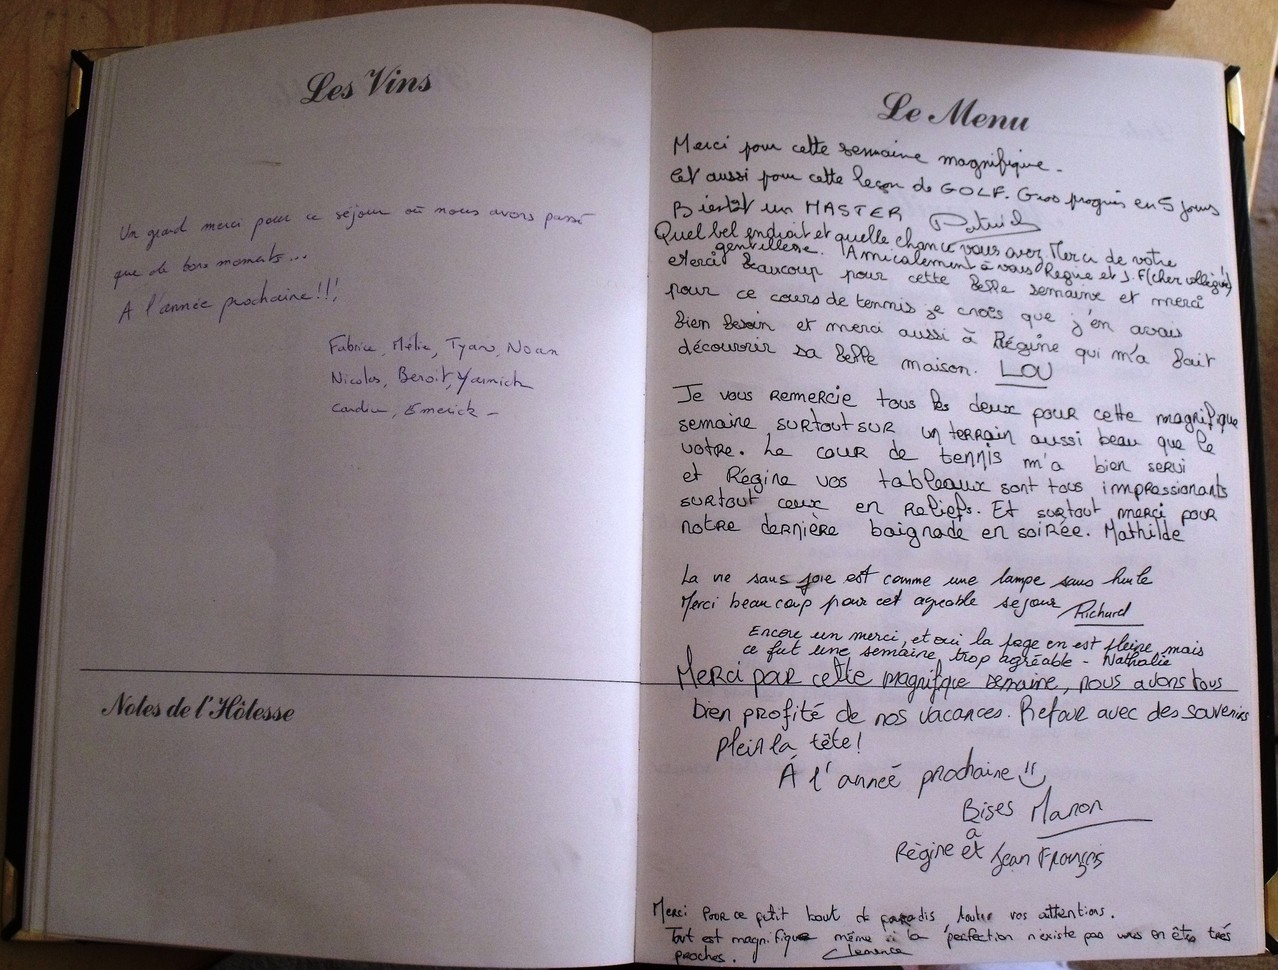 Les Vins
Un grand merci pour ce séjour où nous avons passé
que de bons moments...
A l'année prochaine!!!
Fabrice, Mélie, Noan
Nicolas, Benoit, Yannick
Emerick -
Notes de l'Hôtesse
Le Menu
Merci pour cette semaine magnifique.
Et aussi pour cette leçon de GOLF. Gros progrès en 5 jours
Bientôt un MASTER Patrick
Quel bel endroit et quelle chance vous avez. Merci de votre
gentillesse. Amicalement à vous Régine et J.F (cher collègue)
Merci beaucoup pour cette belle semaine et merci
pour ce cours de tennis je crois que j'en avais
bien besoin et merci aussi à Régine qui m'a fait
découvrir sa belle maison. LOU
Je vous remercie tous les deux pour cette magnifique
semaine surtout sur un terrain aussi beau que le
votre. Le cour de tennis m'a bien servi
et Régine vos tableaux sont tous impressionants
surtout ceux en reliefs. Et surtout merci pour
notre dernière baignade en soirée. Mathilde
La vie sans joie est comme une lampe sans huile
Merci beaucoup pour cet agréable sejour Richard
Encore un merci, et oui la page en est pleine mais
ce fut une semaine trop agréable - Nathalie
Merci par cette magnifique semaine, nous avons tous
bien profité de nos vacances. Retour avec des souvenirs
plein la tête!
À l'année prochaine
Bises Manon
a
Régine et Jean François
Merci Pour ce petit bout de paradis, toutes vos attentions.
Tout est magnifique même si la perfection n'existe pas vous en êtes très
proches. Clémence